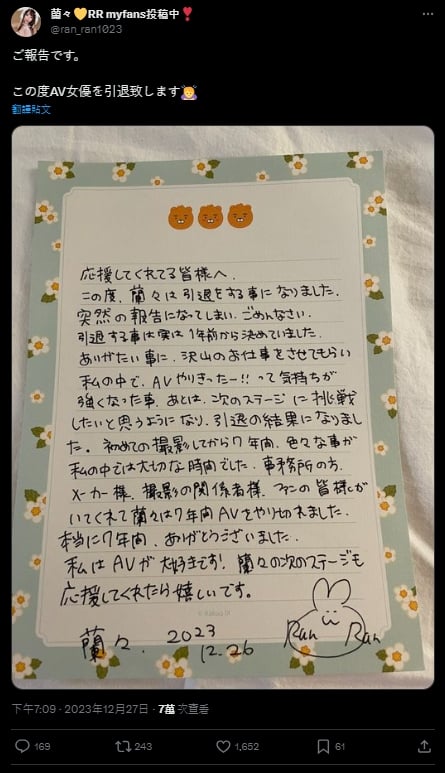 蘭々💛RR myfans投稿中❣️
@ran_ran1023
ご報告です。
この度AV女優を引退致します🙇‍♀️
翻譯貼文
応援してくれてる皆様へ.
この度、蘭々は引退をする事になりました.
突然の報告になってしまい、ごめんなさい.
引退する事は実は1年前から決めていました.
ありがたい事に、沢山のお仕事をさせてもらい
私の中で、AVやりきったー!!って気持ちが
強くなった事、あとは、次のステージに挑戦
したいと思うようになり、引退の結果になりまし
た。初めての撮影してから7年間、色々な事が
私の中では大切な時間でした.事務所の方、
メーカー様、撮影の関係者様、ファンの皆様が
いてくれて蘭々は7年間AVをやり切れました.
本当に7年間、ありがとうございました.
私はAVが大好きです!蘭々の次のステージも
応援してくれたら嬉しいです。
蘭々. 2023
12.26
Ran Ran
下午7:09 · 2023年12月27日 · 7萬 次查看
169 243 1,652 61